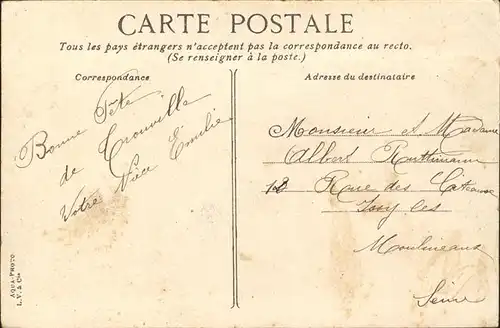 CARTE POSTALE
Tous les pays étrangers n'acceptent pas la correspondance au recto.
(Se renseigner à la poste.)
Correspondance
Bonne Fête
de Trouville
Votre Nièce Emilie
AQUA-PHOTO
L. V. & Cie
Adresse du destinataire
Monsieur et Madame
Albert
18 Rue des
Issy les
Moulineaux
Seine